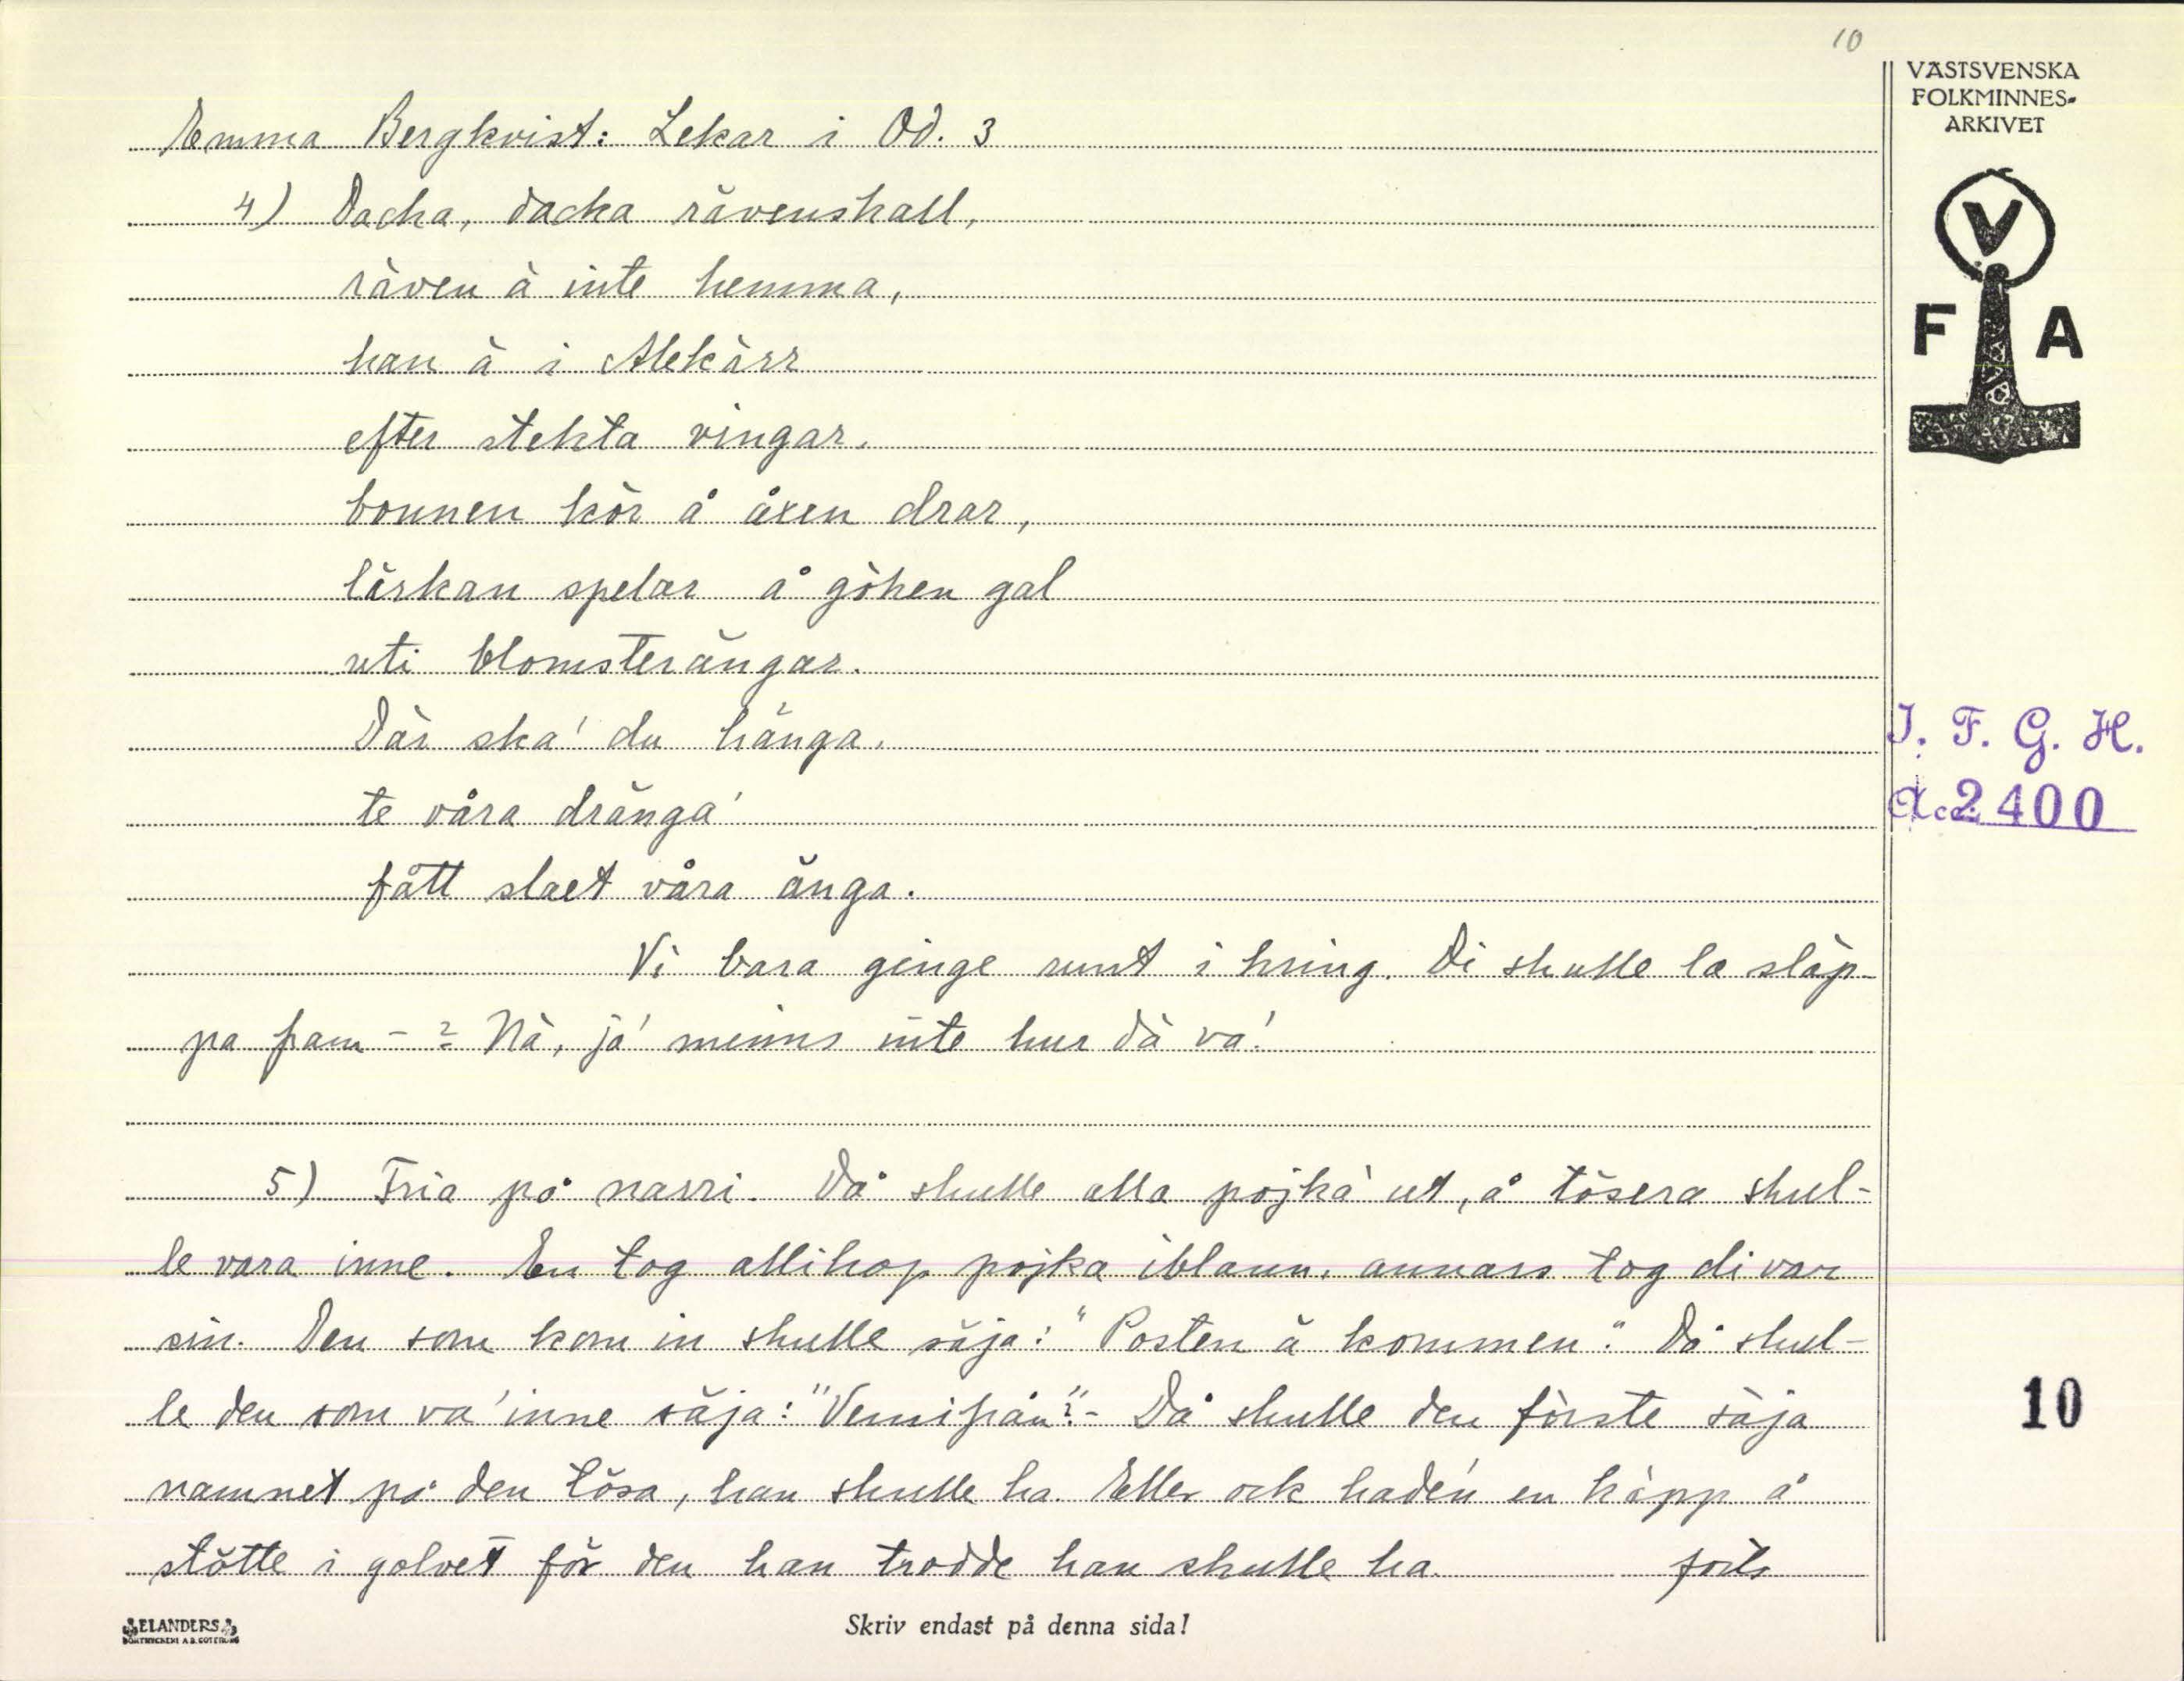 10
VÄSTSVENSKA
FOLKMINNES-
ARKIVET
V
F A
Emma Bergkvist: Lekar i Od. 3
4) Dacka, dacka rävenskall,
räven ä inte hemma,
han ä i Alekärr
efter stekta vingar.
bonnen kör å åxen drar,
lärkan spelar å göken gal
uti blomsterängar.
Där ska' du hänga.
te våra dränga'
fått slaet våra änga.
Vi bara ginge runt i kring. Di skulle la släp-
pa fram - ? Nä, ja' minns inte hur dä va'.
I. F. G. H.
Acc. 2400
5) Fria på narri. Då skulle alla pojka' ut, å tösera skul-
le vara inne. En tog allihop pojka iblann, annars tog di var
sin. Den som kom in skulle säja: "Posten ä kommen." Då skul-
le den som va' inne säja: "Vemifrån"? - Då skulle den förste säja
namnet på den tösa, han skulle ha. Eller ock hade'n en käpp å
stötte i golvet för den han trodde han skulle ha. forts
10
ELANDERS
BOKTRYCKERI A.B. GÖTEBORG
Skriv endast på denna sida!